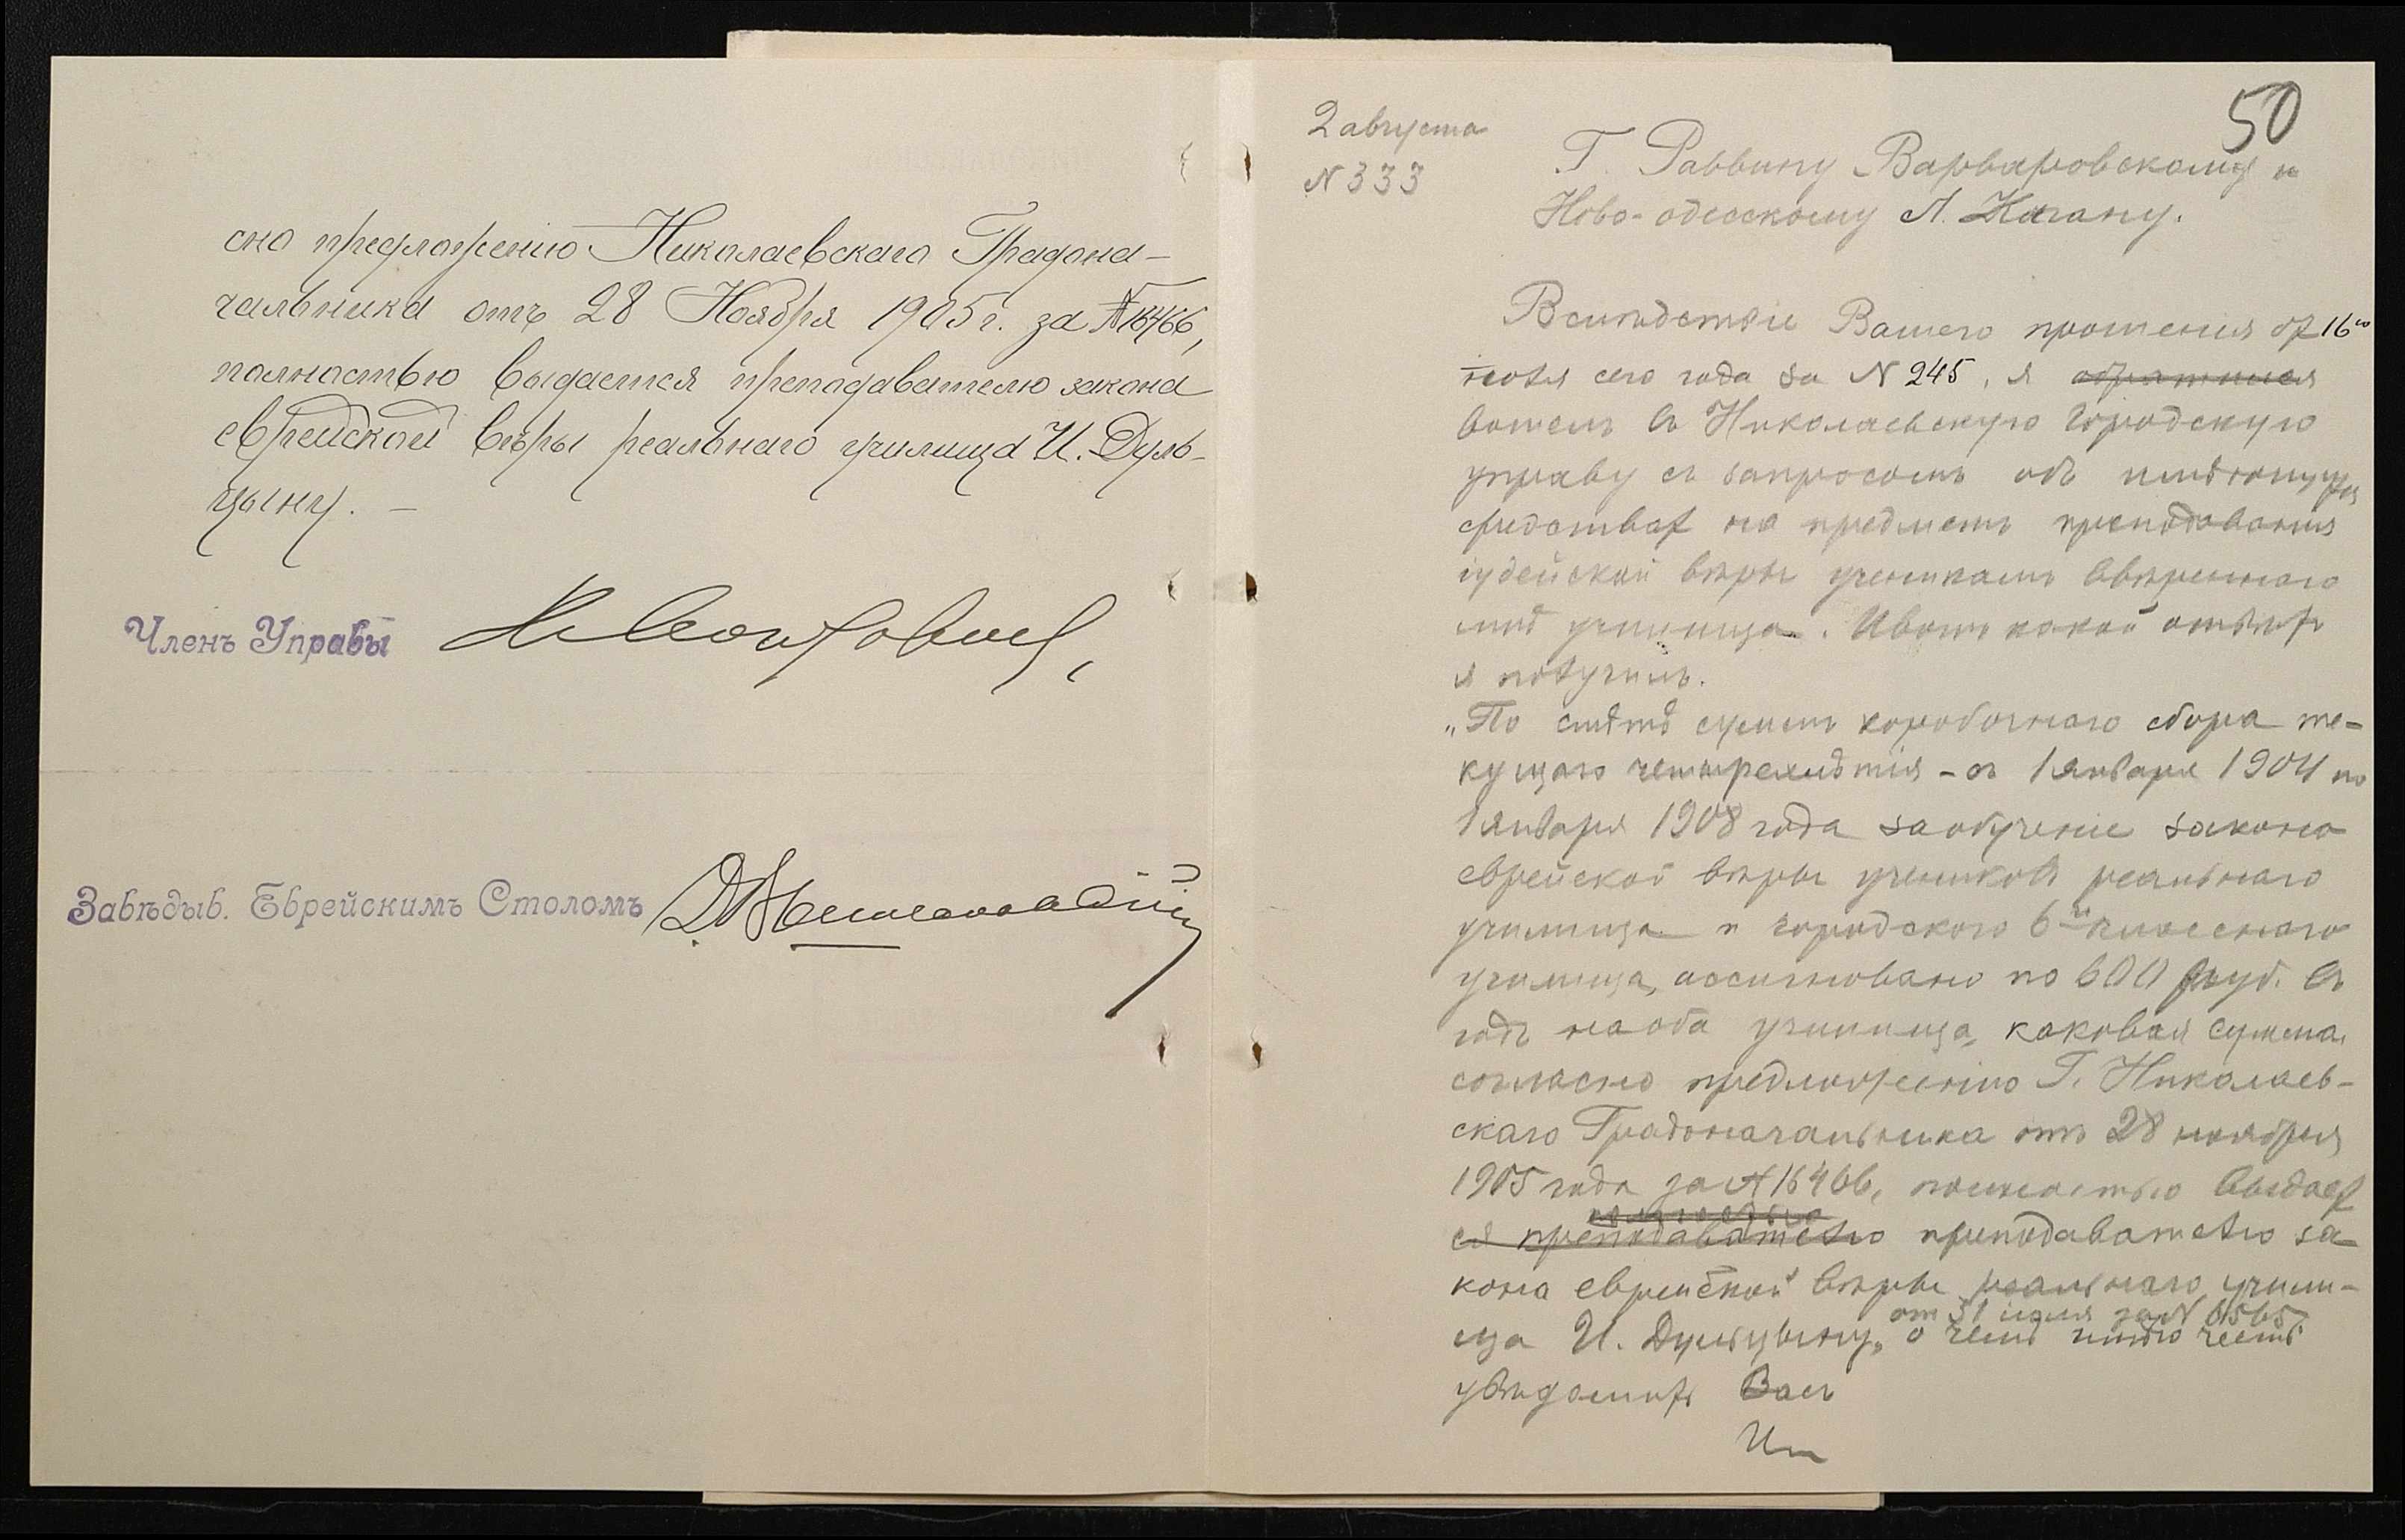 сно предложенію Николаевскаго Градона-
чальника отъ 28 Ноября 1905 г. за № 16466,
полностью выдается преподавателю закона
еврейской вѣры реальнаго училища И. Дуль-
цыну. –
Членъ Управы
Завѣдыв. Еврейскимъ Столомъ
50
2 августа
N 333
Г. Раввину Варваровскому и
Ново-одесскому А. Кагану.
Вслѣдствіе Вашего прошенія от 16го
іюля сего года за N 245, я обратился
вошелъ въ Николаевскую Городскую
управу съ запросомъ объ имѣющихся
средствах на предметъ преподаванія
іудейской вѣры ученикамъ ввѣреннаго
мнѣ училища. И вотъ какой отвѣтъ
я получилъ.
„По смѣтѣ суммъ коробочнаго сбора те-
кущаго четырехлѣтія – съ 1 января 1904 по
1 января 1908 года за обученіе закона
еврейской вѣры учениковъ реальнаго
училища и городского 6ти класснаго
училища, ассигновано по 600 руб. въ
годъ на оба училища, каковая сумма
согласно предложенію Г. Николаев-
скаго Градоначальника отъ 28 ноября
1905 года за № 16466, полностью выдает
полностью
ся преподавателю преподавателю за
кона еврейской вѣры реальнаго учили-
от 31 іюля за N 6565
ща И. Дульцыну„ о чемъ имѣю честь
увѣдомить Васъ
Ин